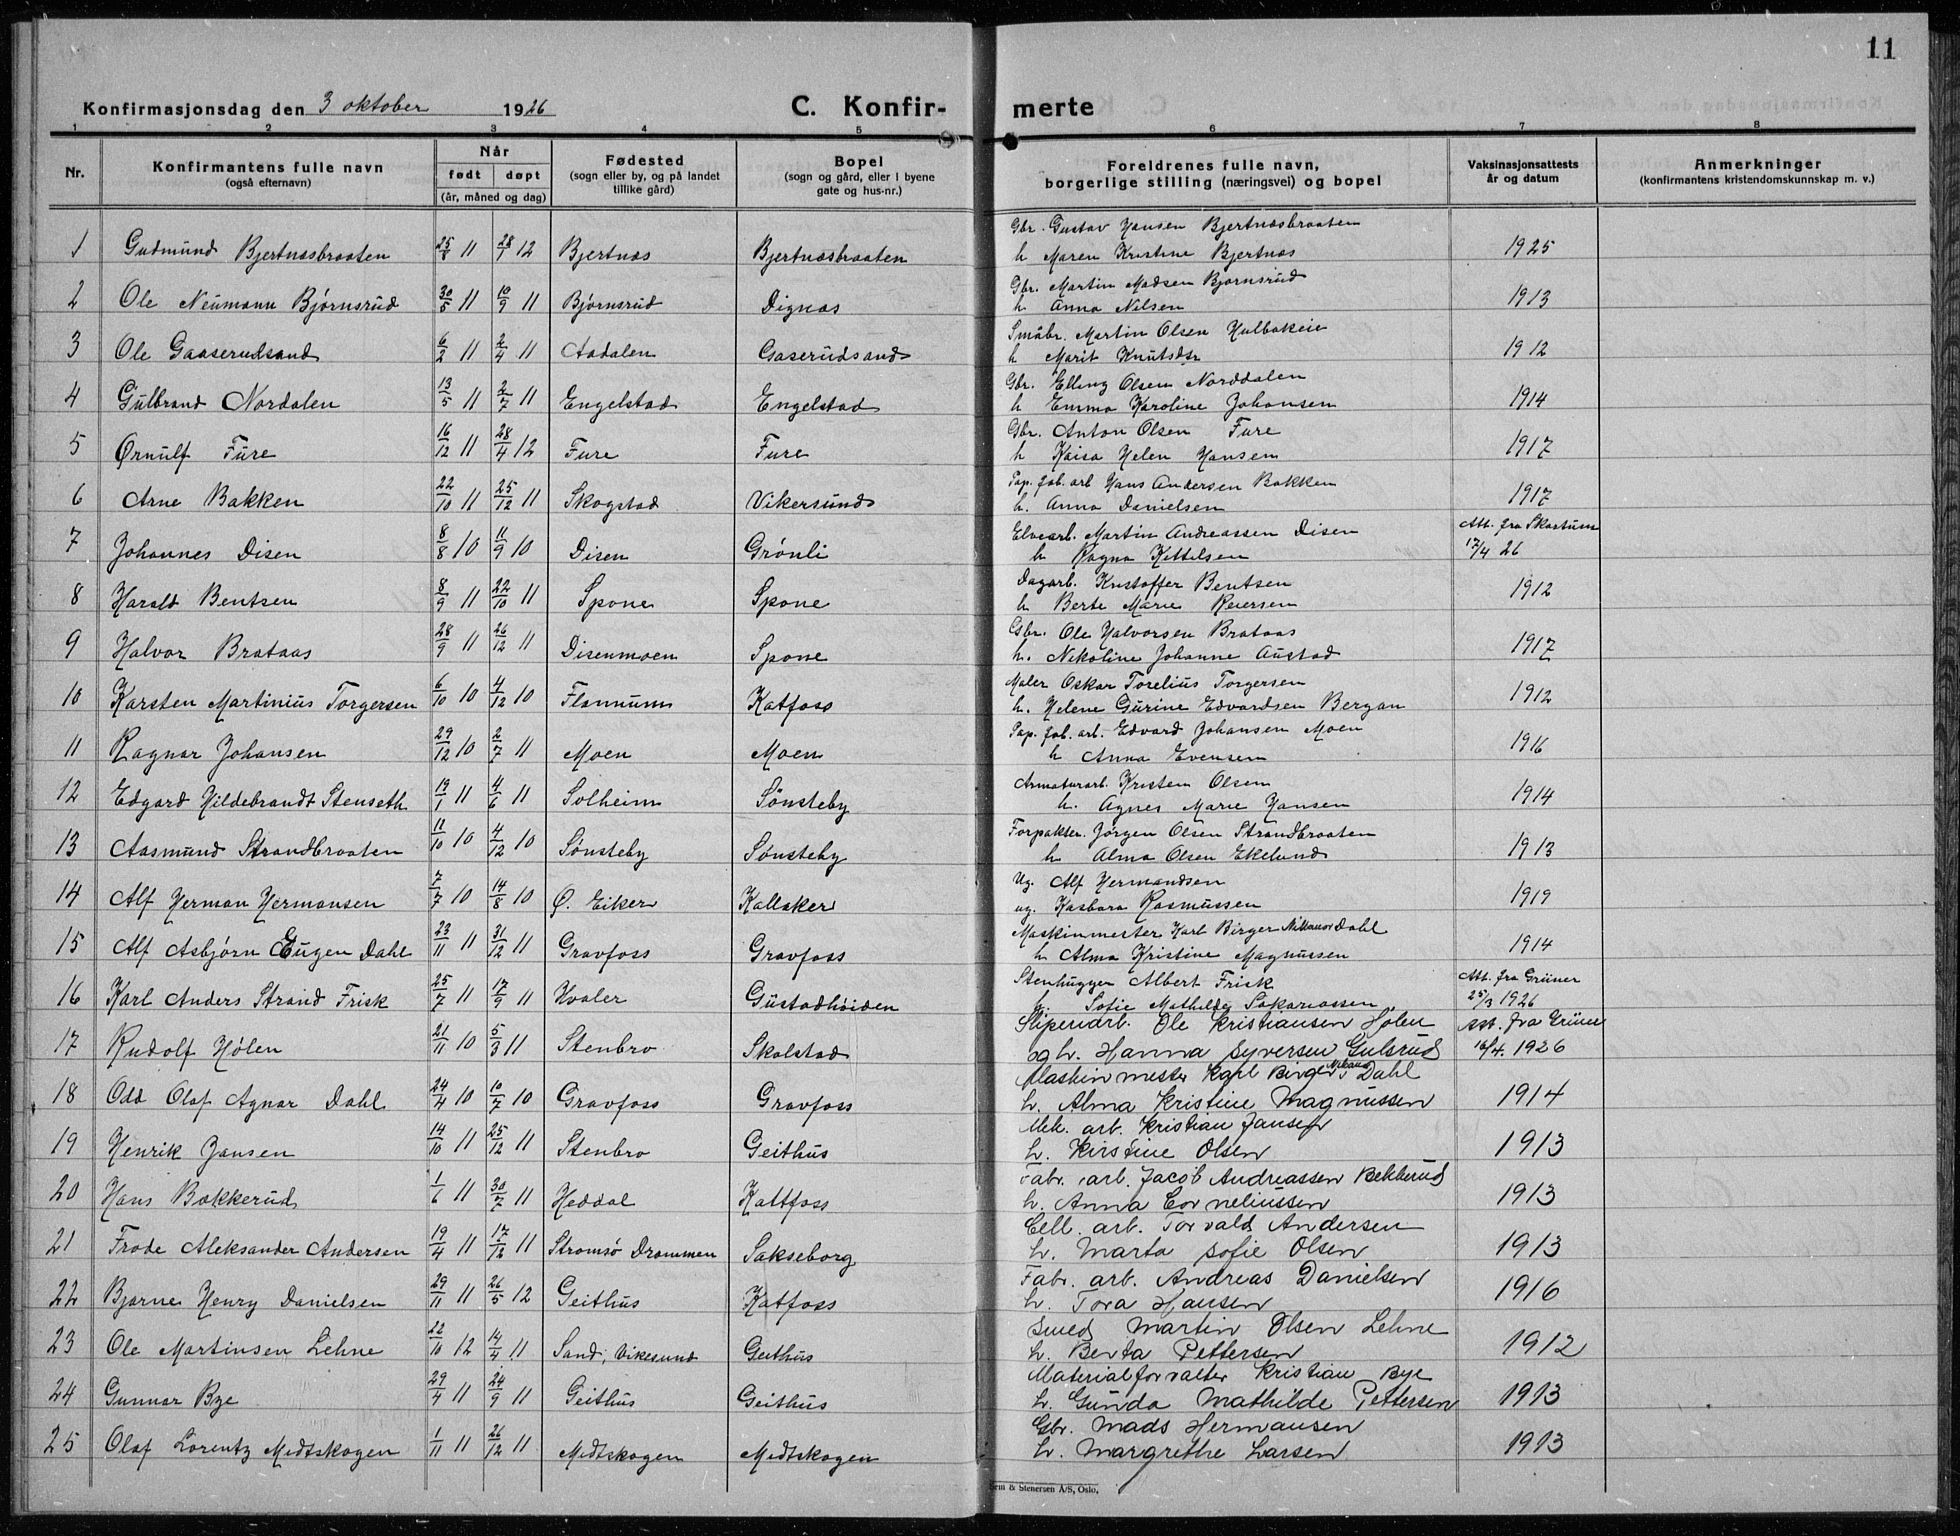 11
Konfirmasjonsdag den 3 oktober 1926
C. Konfir- merte
1 2 3 4 5 6 7 8
Nr. Konfirmantens fulle navn (også efternavn) Når født døpt (år, måned og dag) Fødested (sogn eller by, og på landet tillike gård) Bopel (sogn og gård, eller i byene gate og hus-nr.) Foreldrenes fulle navn, borgerlige stilling (næringsvei) og bopel Vaksinasjonsattests år og datum Anmerkninger (konfirmantens kristendomskunnskap m. v.)
Gbr. Gustav Hansen Bjertnæsbraaten
1 Gudmund Bjertnæsbraaten 25/8 11 28/7 12 Bjertnæs Bjertnæsbraaten h Maren Kristine Bjertnæs 1925
Gbr. Martin Madsen Bjørnsrud
2 Ole Neumann Bjørnsrud 30/5 11 10/9 11 Bjørnsrud Dignæs h Anna Nilsen 1913
Småbr. Martin Olsen Hulbakeie
3 Ole Gaaserudsand 6/2 11 2/4 11 Aadalen Gaserudsand h Marit Knutsdtr 1912
Gbr. Elling Olsen Norddalen
4 Gulbrand Nordalen 13/5 11 2/7 11 Engelstad Engelstad h Emma Karoline Johansen 1914
Gbr. Anton Olsen Fure
5 Ørnulf Fure 16/12 11 28/4 12 Fure Fure h Kaisa Helen Hansen 1917
Pap. fab. arb Hans Andersen Bakken
6 Arne Bakken 22/10 11 25/12 11 Skogstad Vikersund h. Anna Danielsen 1917
Elvearb. Martin Andreassen Disen Att. fra Skartum
7 Johannes Disen 8/8 10 11/9 10 Disen Grönli h Ragna Kittelsen 17/4 26
Dagarb. Kristoffer Bentsen
8 Harald Bentsen 8/9 11 22/10 11 Spone Spone h Berte Marie Reiersen 1912
Gbr. Ole Halvorsen Brataas
9 Halvor Brataas 28/9 11 26/12 11 Disenmoen Spone h. Nikoline Johanne Austad 1917
Maler Oskar Torelius Torgersen
10 Karsten Martinius Torgersen 6/10 10 4/12 10 Flannum Katfoss h. Helene Gurine Edvardsen Bergan 1912
Pap. fab. arb. Edvard Johansen Moen
11 Ragnar Johansen 29/12 10 2/7 11 Moen Moen h Anna Evensen 1916
Armaturarb. Kristen Olsen
12 Edgard Hildebrandt Stenseth 19/1 11 4/6 11 Solheim Sönsteby h. Agnes Marie Hansen 1914
Forpakter. Jørgen Olsen Strandbraaten
13 Aasmund Strandbraaten 11/10 10 4/12 10 Sønsteby Sønsteby h Alma Olsen Ekelund 1913
Ug. Alf Hermandsen
14 Alf Herman Hermansen 7/7 10 14/8 10 Ø. Eiker Kallaker ug. Kasbara Rasmussen 1919
Maskinmester Karl Birger Nikanor Dahl
15 Alf Asbjørn Eugen Dahl 23/11 11 31/12 11 Gravfoss Gravfoss h Alma Kristine Magnussen 1914
Stenhugger Albert Frisk Att. fra Grüner
16 Karl Anders Strand Frisk 25/7 11 17/9 11 Hvaler Gustadhøiden h. Sofie Mathilde Sakariassen 25/3 1926
Sliperiarb. Ole Kristiansen Hølen Att. fra Grüner
17 Rudolf Hølen 21/11 10 5/3 11 Stenbro Skalstad og h. Hanna Syversen Gulsrud 16/4. 1926
Maskinmester Karl Birger Nikanor Dahl
18 Odd Olaf Agnar Dahl 24/4 10 10/7 10 Gravfoss Gravfoss h. Alma Kristine Magnussen 1914
Mek. arb. Kristian Jansen
19 Henrik Jansen 14/10 11 25/12 11 Stenbro Geithus h. Kirstine Olsen 1913
Fabr. arb. Jacob Andreassen Bekkerud
20 Hans Bækkerud 1/6 11 30/7 11 Heddal Kattfoss h. Anna Corneliussen 1913
Cell. arb. Torvald Andersen
21 Frode Aleksander Andersen 19/4 11 17/12 11 Strømsø Drammen Sakseborg h. Marta Sofie Olsen 1913
Fabr. arb. Andreas Danielsen
22 Bjarne Henry Danielsen 29/11 11 26/5 12 Geithus Katfoss h. Tora Hansen 1916
Smed Martin Olsen Lehne
23 Ole Martinsen Lehne 22/10 12 14/4 11 Sand, Vikesund Geithus h. Berta Pettersen 1912
Materialforvalter Kristian Bye
24 Gunnar Bye 29/4 11 24/9 11 Geithus Geithus h. Gunda Mathilde Pettersen 1913
Gbr. Mads Hermansen
25 Olaf Lorentz Midtskogen 1/11 11 26/12 11 Midtskogen Midtskogen h. Margrethe Larsen 1913
Sem & Stenersen A/S, Oslo.